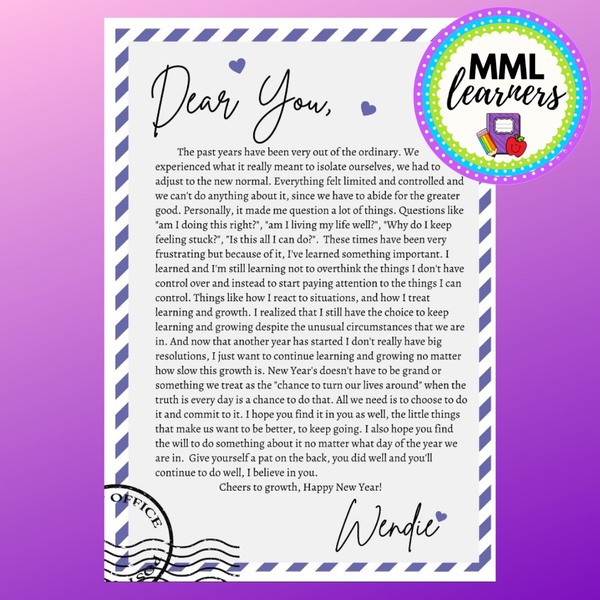 MML
learners
Dear You,
The past years have been very out of the ordinary. We
experienced what it really meant to isolate ourselves, we had to
adjust to the new normal. Everything felt limited and controlled and
we can't do anything about it, since we have to abide for the greater
good. Personally, it made me question a lot of things. Questions like
"am I doing this right?", "am I living my life well?", "Why do I keep
feeling stuck?", "Is this all I can do?". These times have been very
frustrating but because of it, I've learned something important. I
learned and I'm still learning not to overthink the things I don't have
control over and instead to start paying attention to the things I can
control. Things like how I react to situations, and how I treat
learning and growth. I realized that I still have the choice to keep
learning and growing despite the unusual circumstances that we are
in. And now that another year has started I don't really have big
resolutions, I just want to continue learning and growing no matter
how slow this growth is. New Year's doesn't have to be grand or
something we treat as the "chance to turn our lives around" when the
truth is every day is a chance to do that. All we need is to choose to do
it and commit to it. I hope you find it in you as well, the little things
that make us want to be better, to keep going. I also hope you find
the will to do something about it no matter what day of the year we
are in. Give yourself a pat on the back, you did well and you'll
continue to do well, I believe in you.
Cheers to growth, Happy New Year!
Wendie
OFFICE